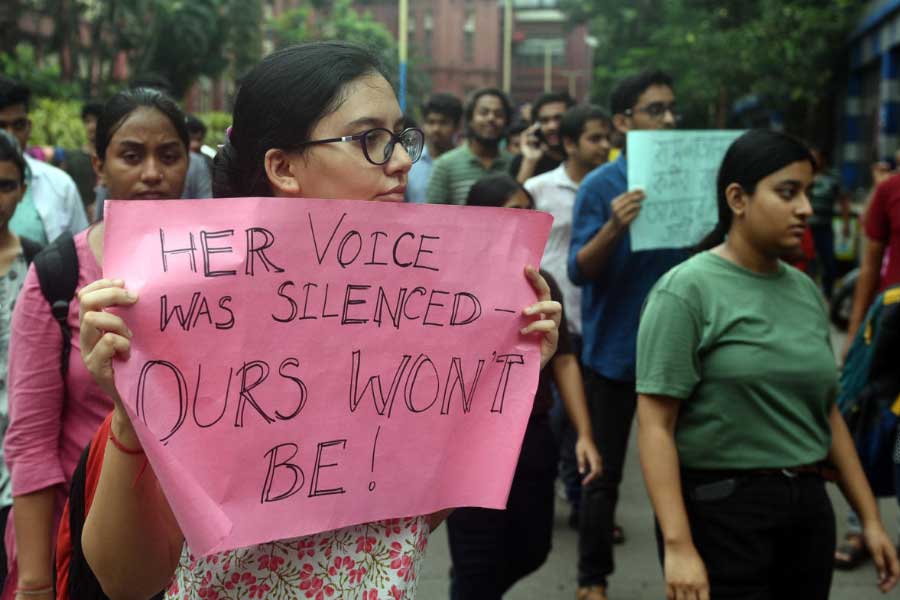 HER VOICE
WAS SILENCED –
OURS WON'T
BE!